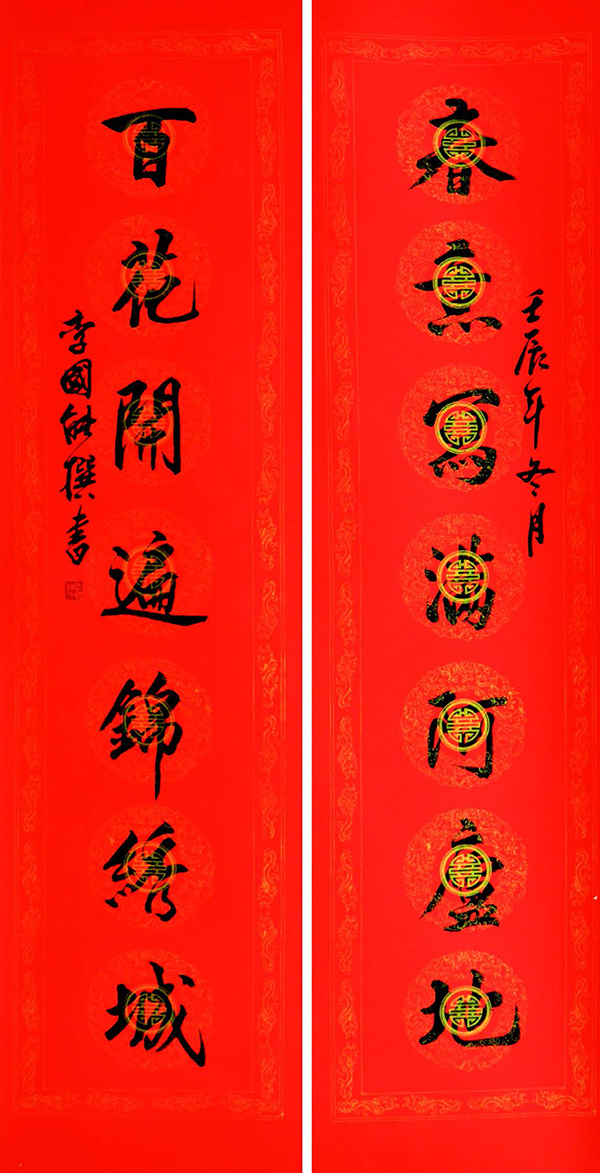 壬辰年冬月
春意寫滿阿盧地
百花開遍錦綉城
李國能撰書